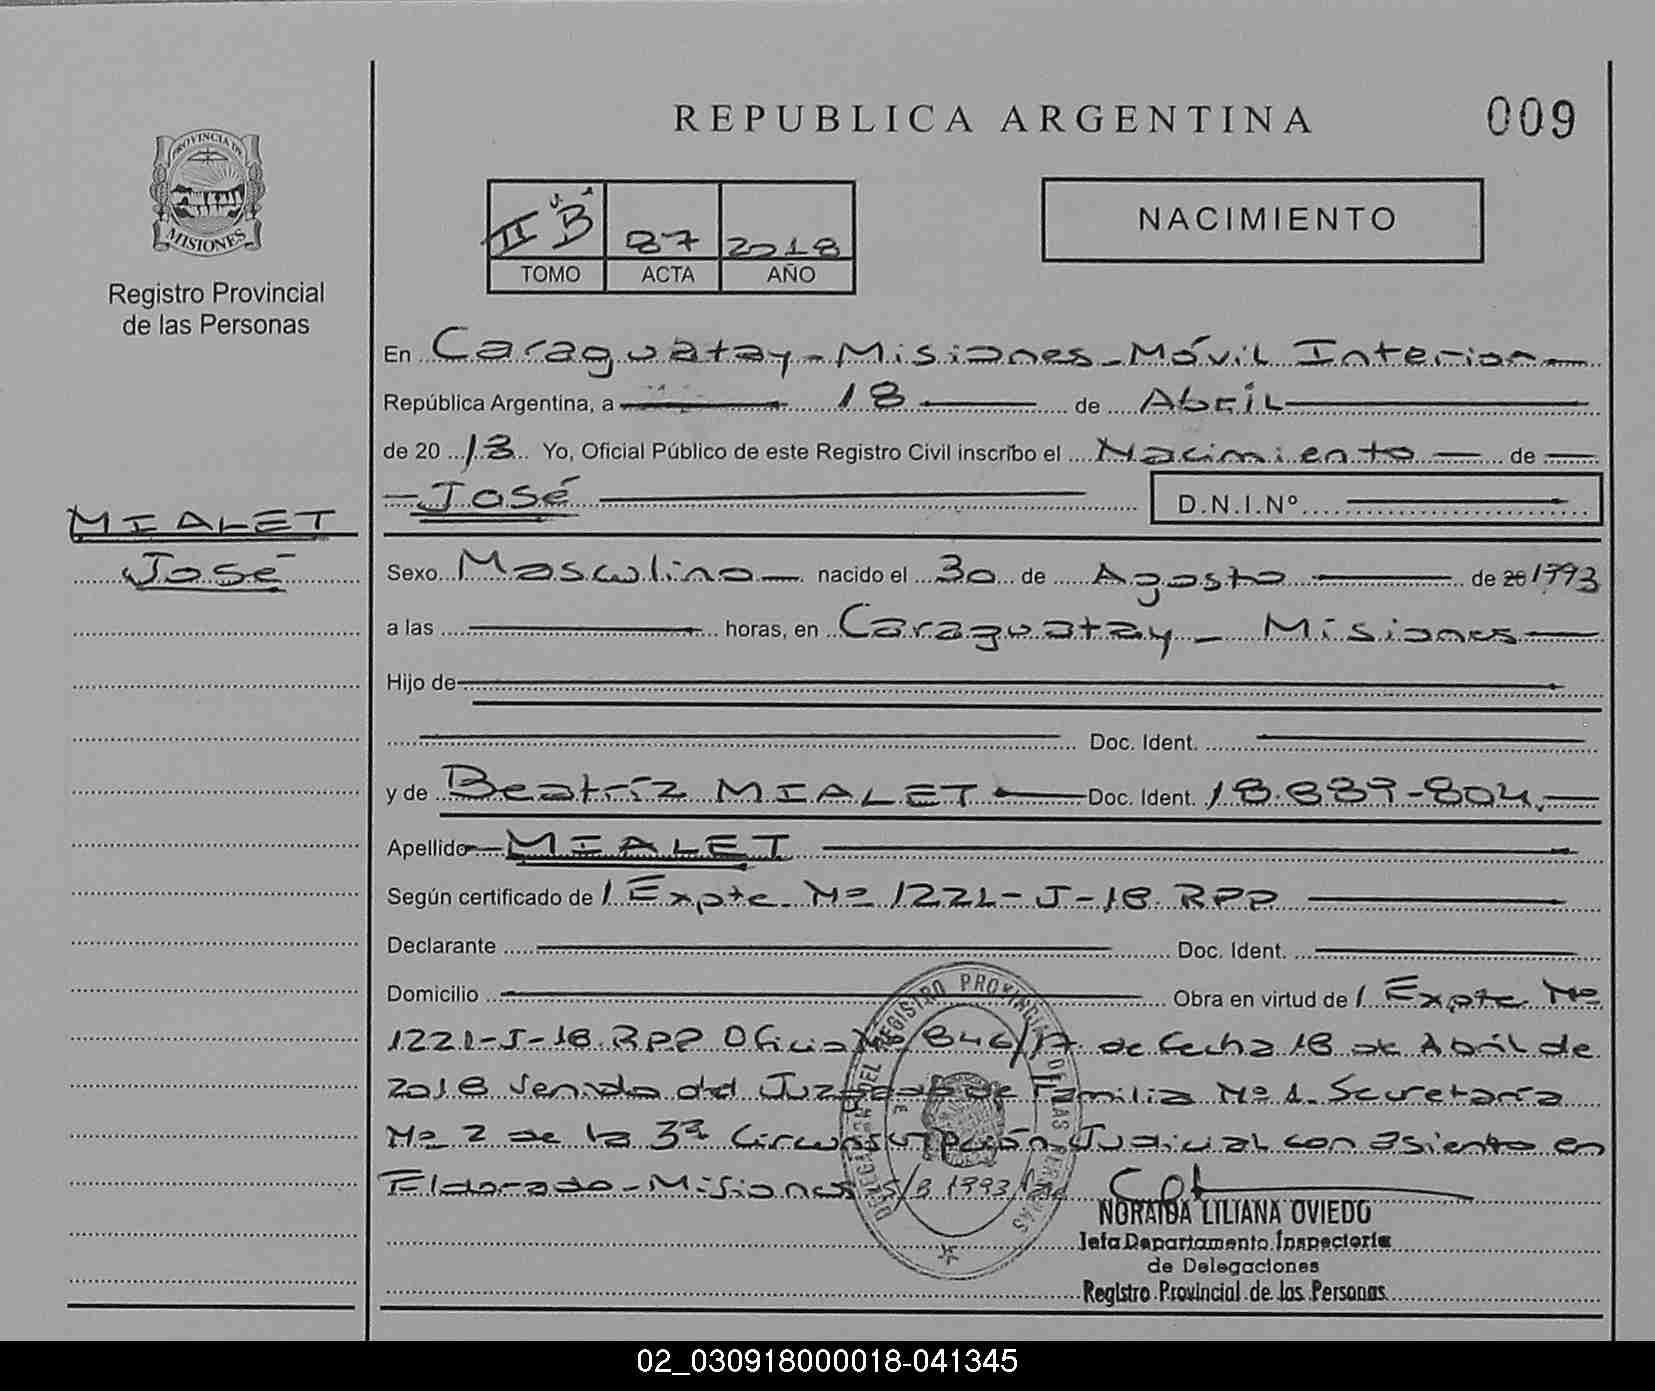 REPUBLICA ARGENTINA
009
PROVINCIA DE
MISIONES
Registro Provincial
de las Personas
II "B"
87
2018
TOMO
ACTA
AÑO
NACIMIENTO
En Caraguatay - Misiones - Móvil Interior
República Argentina, a 18 de Abril
de 20 18 Yo, Oficial Público de este Registro Civil inscribo el Nacimiento de
José D.N.I.Nº
MIALET
José
Sexo Masculino nacido el 30 de Agosto de 20 1993
a las horas, en Caraguatay - Misiones
Hijo de
Doc. Ident.
y de Beatríz MIALET Doc. Ident. 18.839-804.
Apellido MIALET
Según certificado de / Expte. Nº 1221-J-18. RPP
Declarante Doc. Ident.
Domicilio Obra en virtud de / Expte. Nº
1221-J-18. RPP Oficio Nº 846/17 de fecha 18 de Abril de
2018 venido del Juzgado de Familia Nº 1. Secretaría
Nº 2 de la 3ª Circunscripción Judicial con asiento en
Eldorado - Misiones 1993
DELEGACION DEL REGISTRO PROVINCIAL DE LAS PERSONAS
NORAIDA LILIANA OVIEDO
Jefa Departamento Inspectoria
de Delegaciones
Registro Provincial de las Personas
02_030918000018-041345